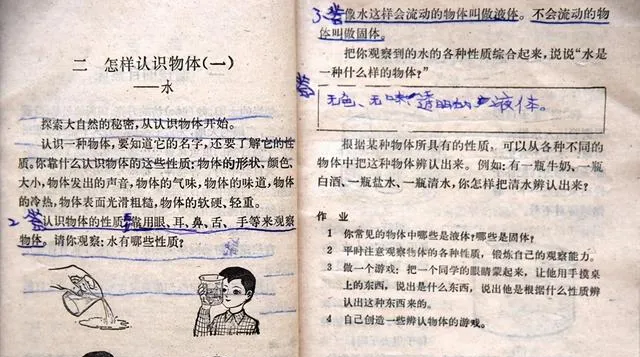 二 怎样认识物体(一)
——水
探索大自然的秘密,从认识物体开始。
认识一种物体,要知道它的名字,还要了解它的性
质。你靠什么认识物体的这些性质:物体的形状、颜色、
大小,物体发出的声音,物体的气味,物体的味道,物体
的冷热,物体表面光滑粗糙,物体的软硬、轻重。
2 答 认识物体的性质,常用眼、耳、鼻、舌、手等来观察
物体。请你观察:水有哪些性质?
3答 像水这样会流动的物体叫做液体。不会流动的物
体叫做固体。
把你观察到的水的各种性质综合起来,说说“水是
一种什么样的物体?”
答
无色、无味、透明的 液体。
根据某种物体所具有的性质,可以从各种不同的
物体中把这种物体辨认出来。例如:有一瓶牛奶、一瓶
白酒、一瓶盐水、一瓶清水,你怎样把清水辨认出来?
作 业
1 你常见的物体中哪些是液体?哪些是固体?
2 平时注意观察物体的各种性质,锻炼自己的观察能力。
3 做一个游戏:把一个同学的眼睛蒙起来,让他用手摸桌
上的东西,说出是什么东西,说出他是根据什么性质辨
认出这种东西来的。
4 自己创造一些辨认物体的游戏。